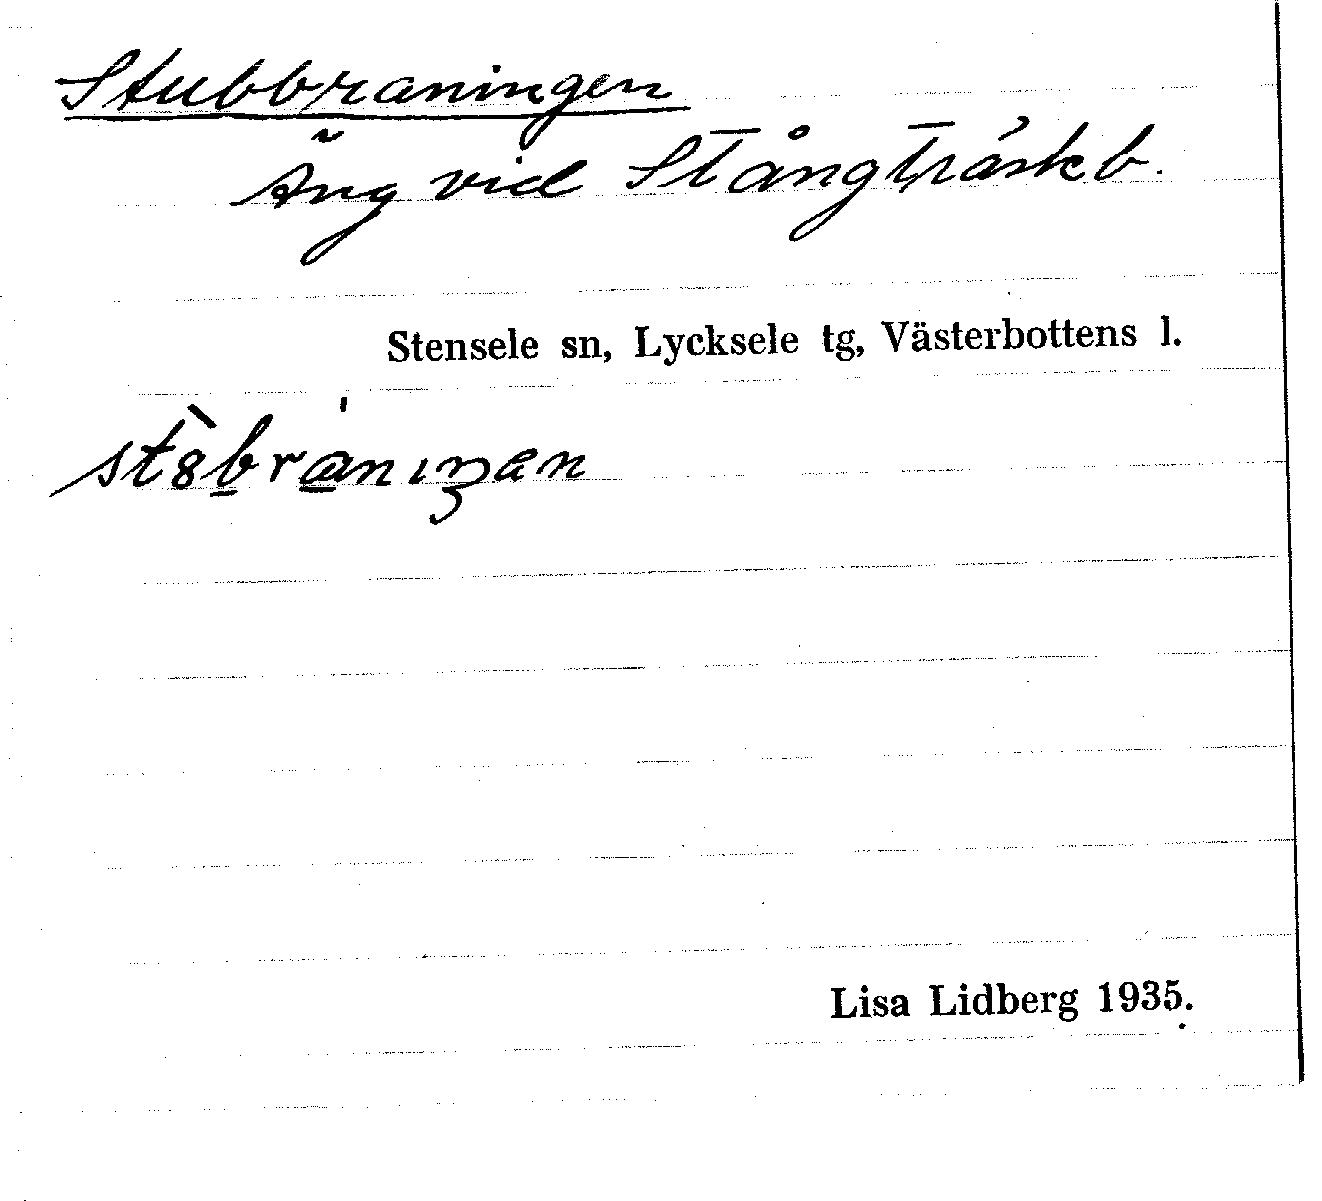 Stubbraningen
Äng vid Stångträskb.
Stensele sn, Lycksele tg, Västerbottens l.
Lisa Lidberg 1935.